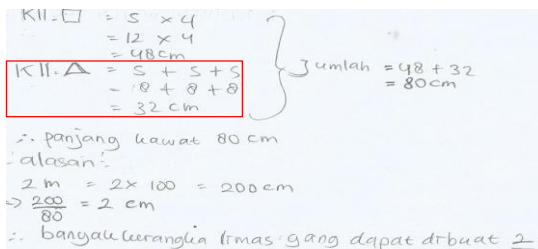 Kll. □ = s x 4
= 12 x 4
= 48 cm
Kll. △ = s + s + s
= 8 + 8 + 8
= 32 cm
Jumlah = 48 + 32
= 80 cm
∴ panjang kawat 80 cm
alasan :
2 m = 2 x 100 = 200 cm
→ 200/80 = 2 cm
∴ banyak kerangka limas yang dapat dibuat 2